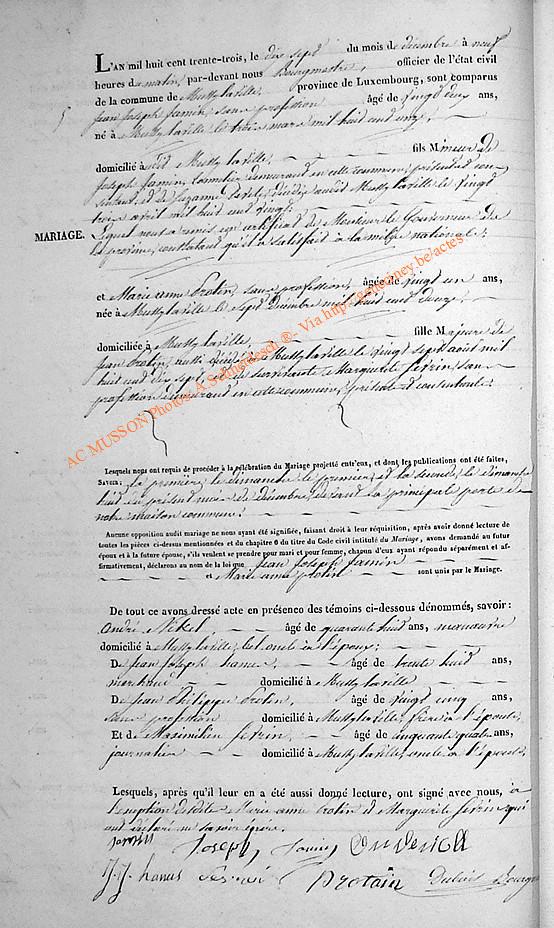 L'AN mil huit cent trente-trois, le dix sept du mois de décembre à neuf
heures du matin, par-devant nous Bourgmestre, officier de l'état civil
de la commune de Mussy la ville, province de Luxembourg, sont comparus
Jean Joseph Jamin, sans profession âgé de vingt deux ans,
né à Mussy la ville le trois mars mil huit cent onze,
domicilié à dit Mussy la ville, fils Mineur de
Joseph Jamin, demeurant en cette commune, présent et con
sentant, et de Suzanne décédée audit Mussy la ville le vingt
trois avril mil huit cent vingt;
Lequel nous a remis un certificat de Monsieur le Gouverneur de
MARIAGE.
la province, constatant qu'il a satisfait à la milice nationale;
et Marie anne Protin, sans profession, âgée de vingt un ans,
née à Mussy la ville le sept décembre mil huit cent douze,
domiciliée à Mussy la ville, fille Majeure de
Jean Protin, décédé à Mussy la ville le vingt sept août mil
huit cent dix sept et de Marguerite Servin, sans
profession demeurant en cette commune, présente et consentante;
AC MUSSON Photos A.Schmedesch ®- Via http://genciney.be/actes
Lesquels nous ont requis de procéder à la célébration du Mariage projetté entr'eux, et dont les publications ont été faites,
SAVOIR: la première, le dimanche le premier, et la seconde, le dimanche
huit du présent mois de décembre, devant la principale porte de
notre maison commune;
Aucune opposition audit mariage ne nous ayant été signifiée, faisant droit à leur réquisition, après avoir donné lecture de
toutes les pièces ci-dessus mentionnées et du chapitre 6 du titre du Code civil intitulé du Mariage, avons demandé au futur
époux et à la future épouse, s'ils veulent se prendre pour mari et pour femme, chacun d'eux ayant répondu séparément et af-
firmativement, déclarons au nom de la loi que Jean Joseph Jamin
et Marie anne Protin sont unis par le Mariage.
De tout ce avons dressé acte en présence des témoins ci-dessous dénommés, savoir:
André Nikel, âgé de quarante huit ans, manœuvre
domicilié à Mussy la ville, bel oncle à l'époux;
De Jean Joseph hanus, âgé de trente huit ans,
marchand domicilié à Mussy la ville
De Jean Philippe Protin, âgé de vingt cinq ans,
sans profession domicilié à Mussy la ville, frère à l'épouse,
Et de Maximilien Servin âgé de cinquante quatre ans,
journalier domicilié à Mussy la ville, oncle à l'épouse;
Lesquels, après qu'il leur en a été aussi donné lecture, ont signé avec nous, à
l'exception de dite Marie anne Protin et Marguerite Servin qui
ont déclaré ne savoir écrire.
jamin Joseph Jamin
J. J. hanus Protain Bourgm